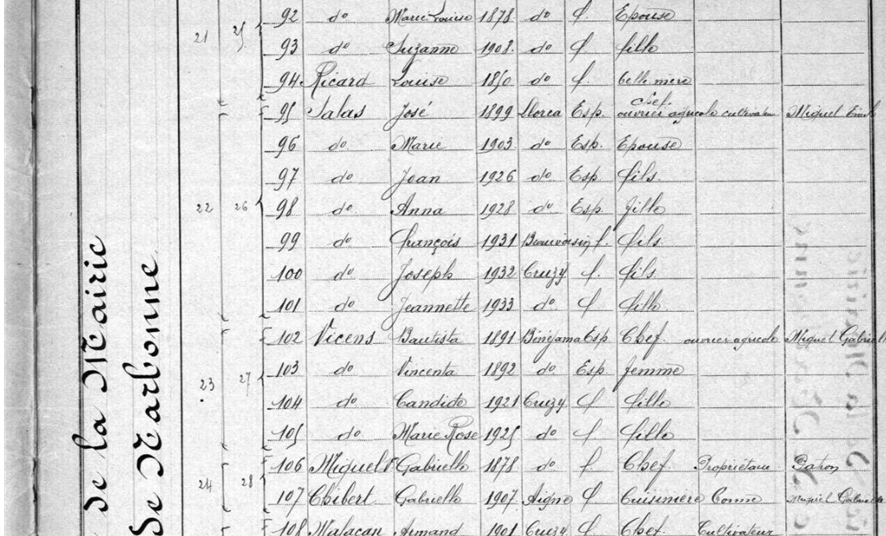 92 do Marie Louise 1878 do f. Epouse
21 25 93 do Suzanne 1908 do f fille
94 Ricard Louise 1850 do f. belle mere
95 Salas José 1899 Llorca Esp. chef. ouvrier agricole cultivateur Miquel
96 do Marie 1903 do Esp. Epouse
97 do Jean 1926 do Esp fils.
22 26 98 do Anna 1928 do Esp fille
99 do François 1931 Beauvoisin f. fils.
100 do Joseph 1932 Cruzy f. fils
101 do Jeannette 1933 do f fille
102 Vicens Bautista 1891 Benejama Esp Chef ouvrier agricole Miquel Gabrielle
103 do Vincenta 1892 do Esp femme
23 27 104 do Candide 1921 Cruzy f fille
105 do Marie Rose 1925 do f fille
106 Miquel Gabrielle 1878 do f. Chef. Propriétaire Patron
24 28 107 Chibert Gabrielle 1907 Aigne f Cuisinière Miquel Gabrielle
108 Malacan Armand 1901 Cruzy f. Chef. Cultivateur
de la Mairie
de Narbonne.